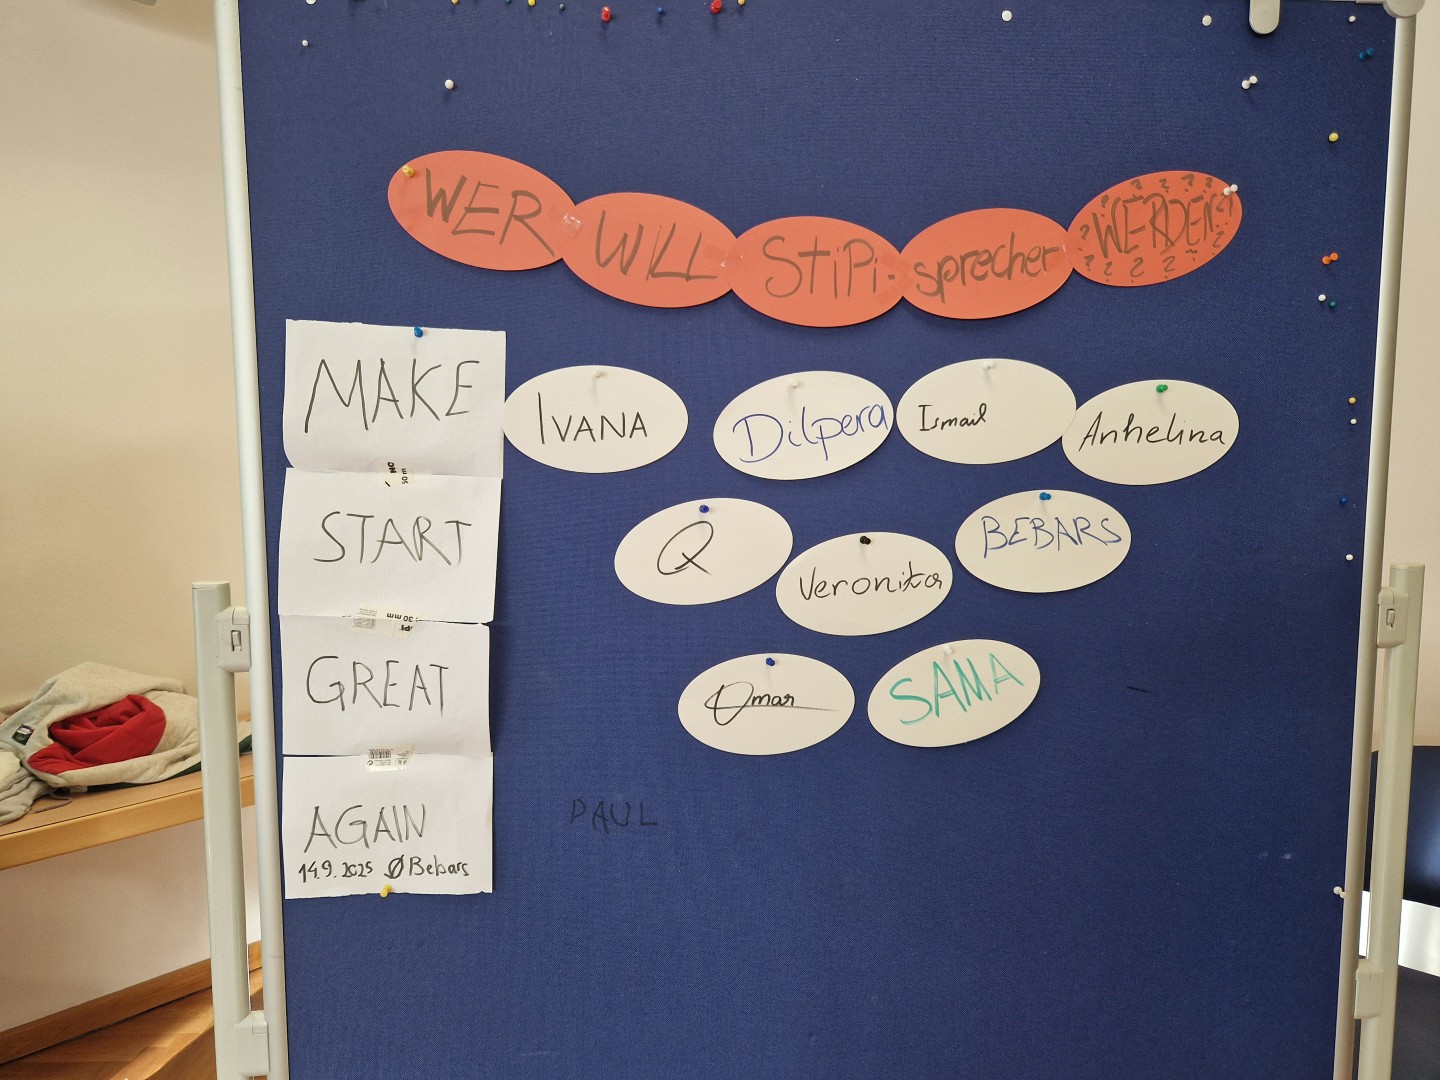 WER WILL STiPi- sprecher WERDEN?
? ? ? ? ? ? ? ? ? ? ?
MAKE
START
GREAT
AGAIN
14.9.2025 Ø Bebars
IVANA
Dilpera
Ismail
Anhelina
Q
Veronika
BEBARS
Omar
SAMA
PAUL